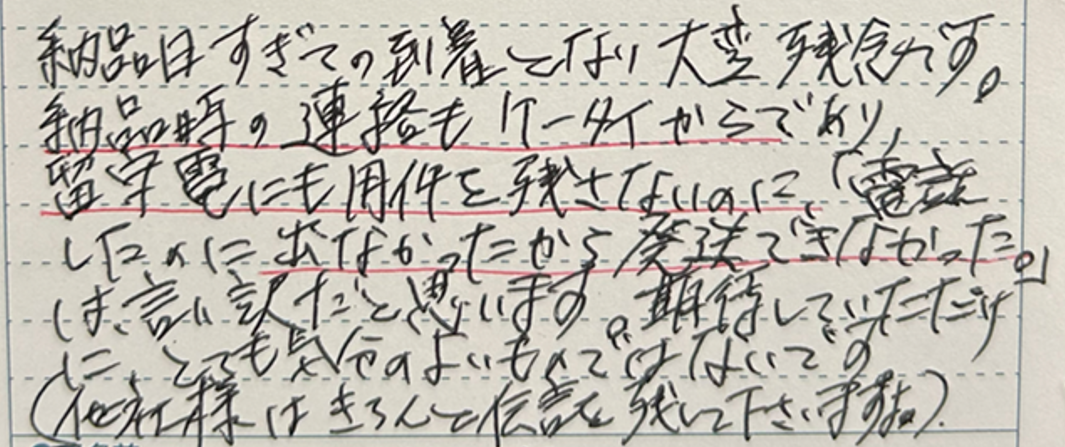 納品日すぎての到着となり大変残念です。
納品時の連絡もケータイからであり、
留守電にも用件を残さないのに、「電話
したのに出なかったから発送できなかった。」
は、言い訳だと思います。期待していただけ
に とても気分のよいものではないです
(他社様はきちんと伝言を残して下さいますよ。)